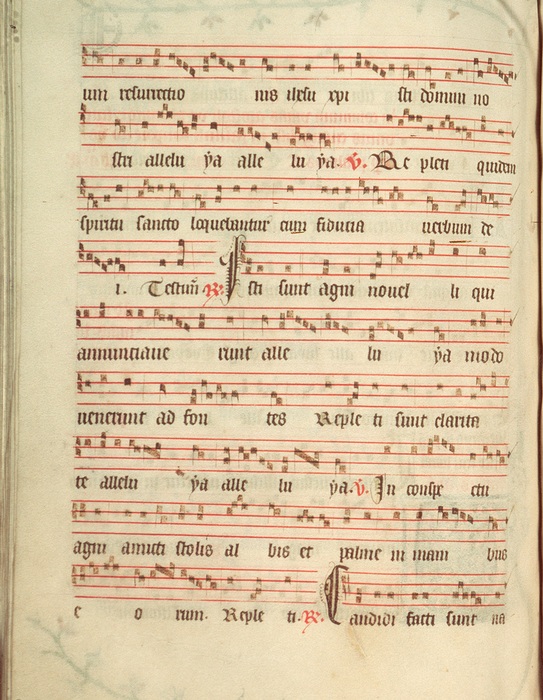 um resurrectio nis ihesu xpi sti domini no
stri allelu ya alle lu ya. V. Re pleti quidem
spiritu sancto loquebantur cum fiducia uerbum de
i. Testim R. I sti sunt agni nouel li qui
annunciaue runt alle lu ya modo
uenerunt ad fon tes Reple ti sunt clarita
te allelu ya alle lu ya. V. In conspe ctu
agni amicti stolis al bis et palme in mani bus
e o rum. Reple ti. R. Candidi facti sunt na